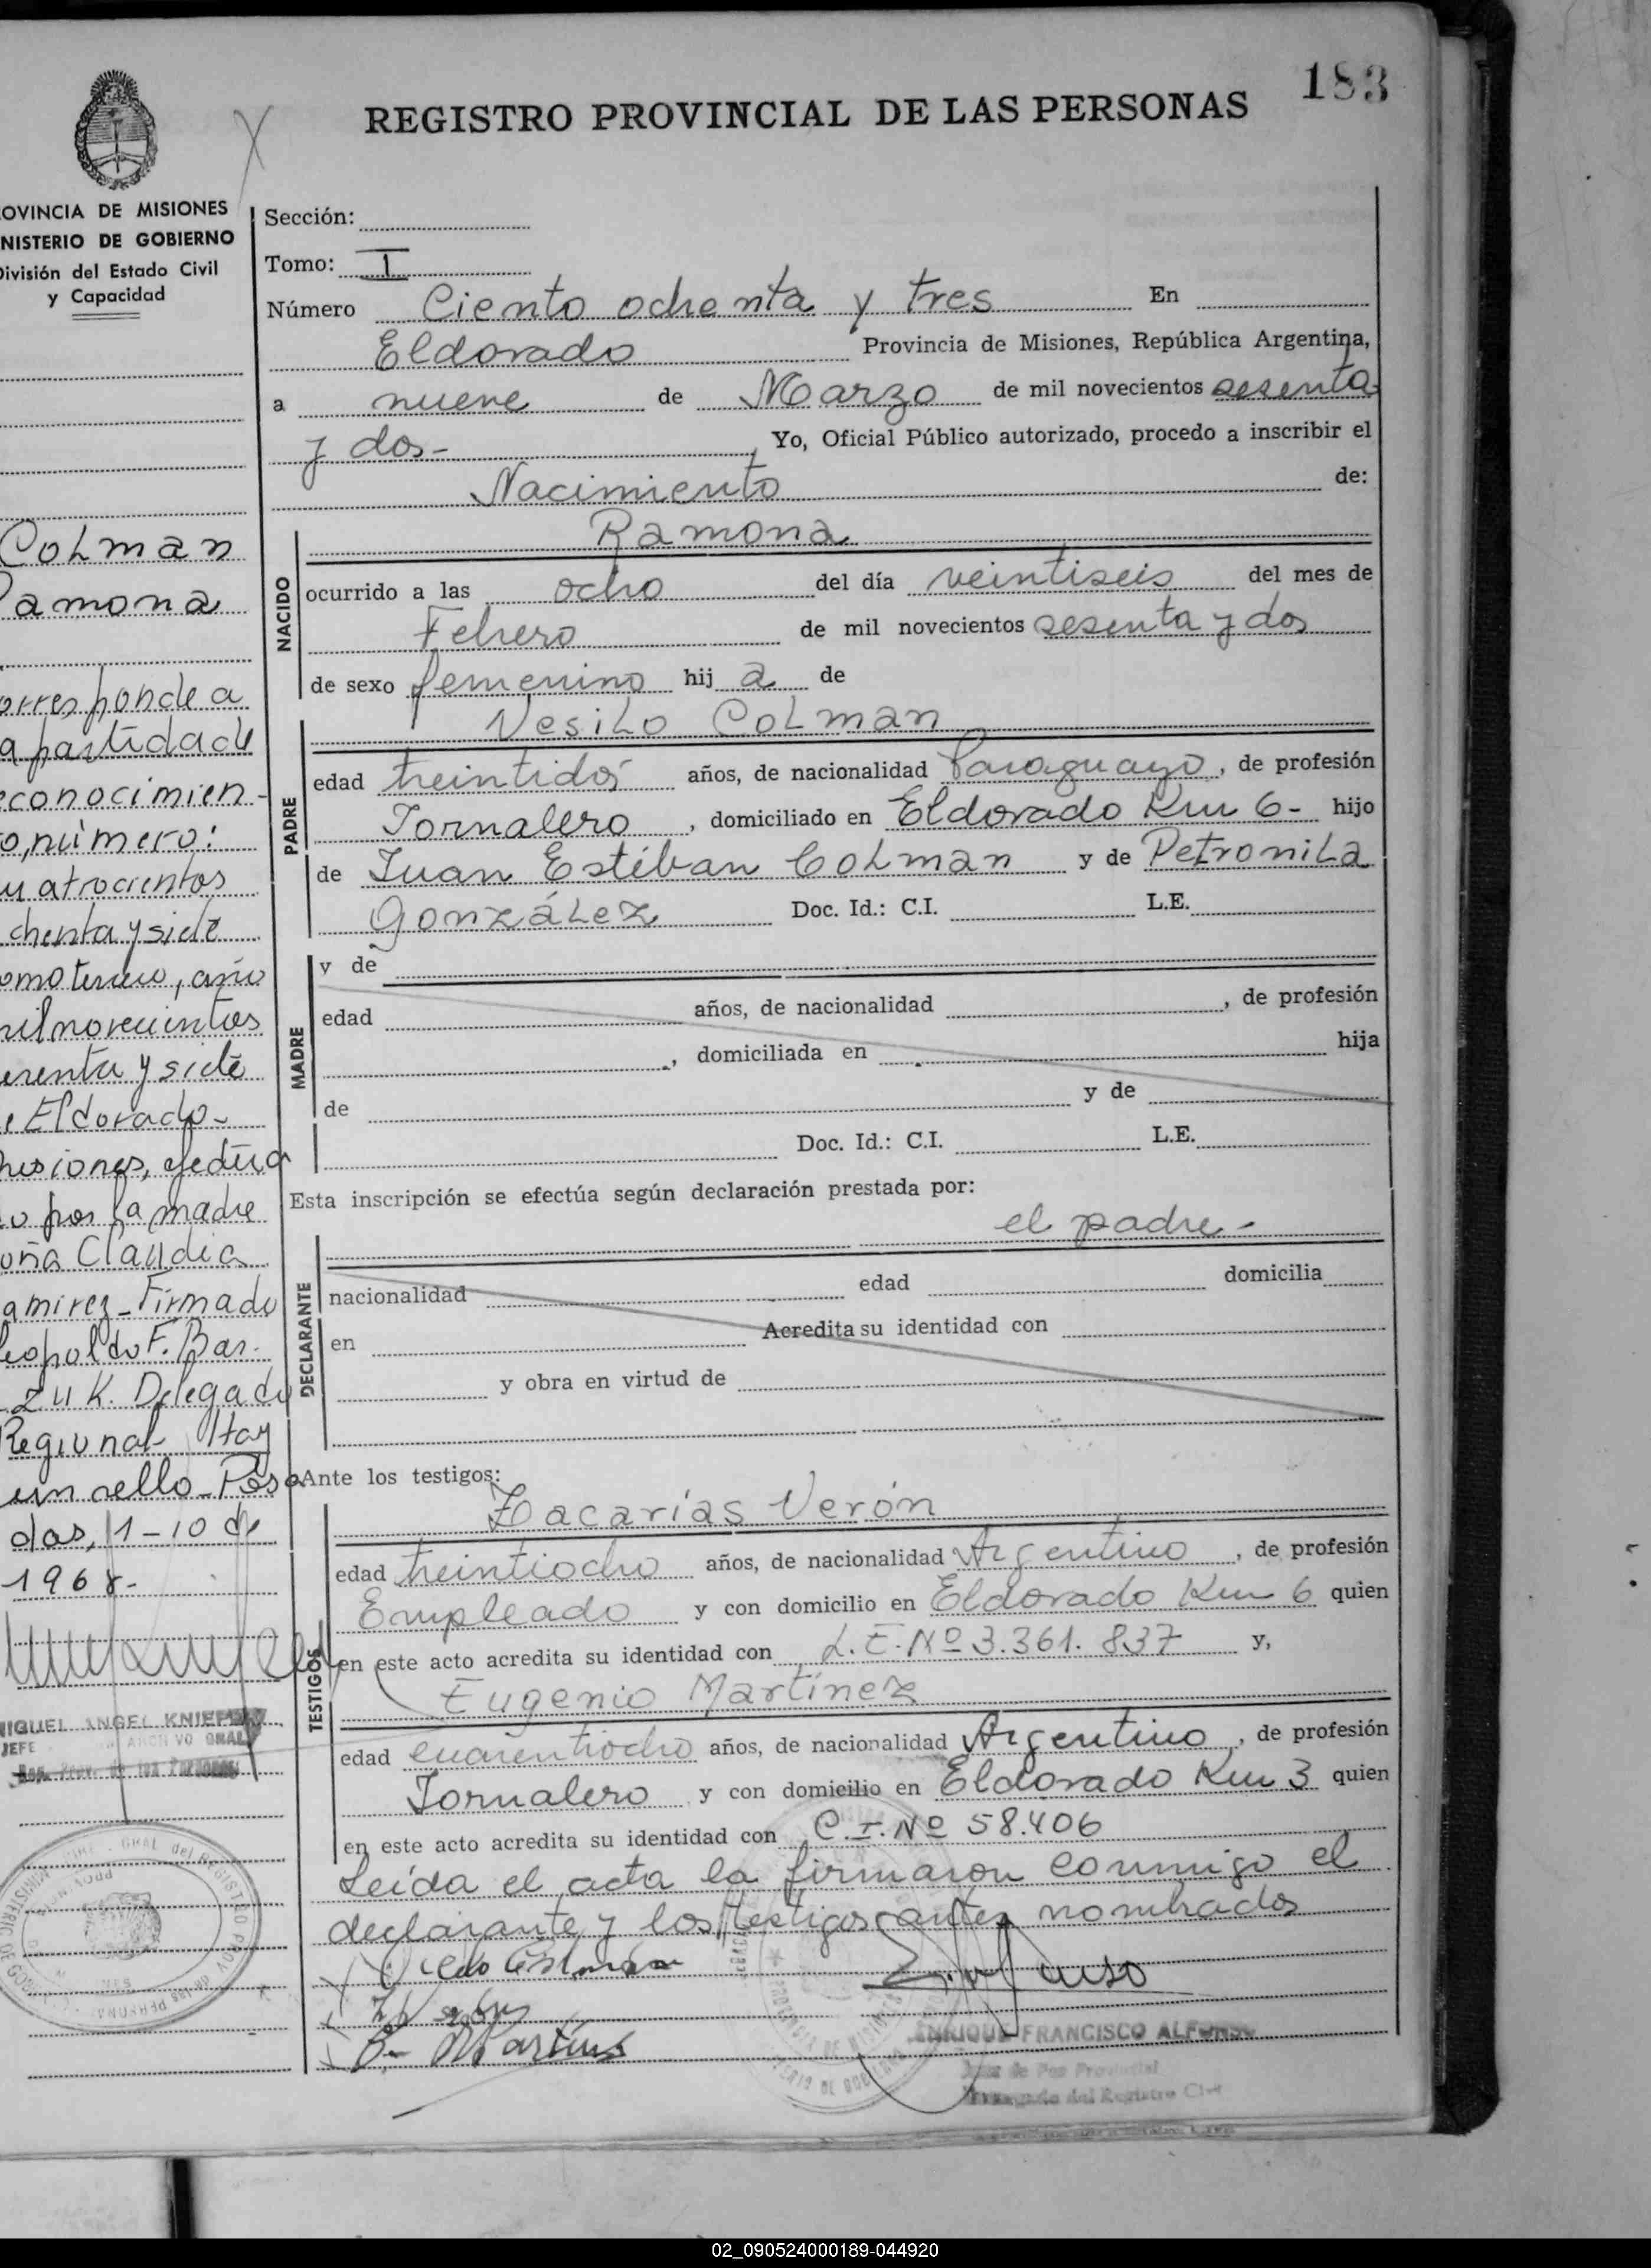 183
REGISTRO PROVINCIAL DE LAS PERSONAS
OVINCIA DE MISIONES
NISTERIO DE GOBIERNO
División del Estado Civil
y Capacidad
Sección:
Tomo: I
Número Ciento ochenta y tres En
Eldorado Provincia de Misiones, República Argentina,
a nueve de Marzo de mil novecientos sesenta
y dos- Yo, Oficial Público autorizado, procedo a inscribir el
Nacimiento de:
Ramona
NACIDO
ocurrido a las ocho del día veintiseis del mes de
Febrero de mil novecientos sesenta y dos
de sexo femenino hij a de
Vesilo Colman
PADRE
edad treintidós años, de nacionalidad Paraguayo, de profesión
Jornalero, domiciliado en Eldorado Km 6- hijo
de Juan Estéban Colman y de Petronila
González Doc. Id.: C.I. L.E.
MADRE
y de
edad años, de nacionalidad , de profesión
, domiciliada en hija
de y de
Doc. Id.: C.I. L.E.
Esta inscripción se efectúa según declaración prestada por:
el padre-
DECLARANTE
nacionalidad edad domicilia
en Acredita su identidad con
y obra en virtud de
Ante los testigos:
Zacarías Verón
TESTIGOS
edad treintiocho años, de nacionalidad Argentino, de profesión
Empleado y con domicilio en Eldorado Km 6 quien
en este acto acredita su identidad con L.E. Nº 3.361.837 y,
Eugenio Martínez
edad cuarentiocho años, de nacionalidad Argentino, de profesión
Jornalero y con domicilio en Eldorado Km 3 quien
en este acto acredita su identidad con C.I. Nº 58.406
Leída el acta la firmaron conmigo el
declarante y los testigos antes nombrados
ENRIQUE FRANCISCO ALFONSO
Juez de Paz Provincial
Encargado del Registro Civil
Colman
amona
orresponde a
a partida de
econocimien-
o, número:
uatrocientos
chenta y siete
omo tercero, año
mil novecientos
esenta y siete
e Eldorado-
isiones, efectua
o por la madre
oña Claudia
amirez-Firmado
eopoldo F. Bar-
zuk. Delegado
Regional- Hay
un sello- Posa
das, 11-10 de
1968-
MIGUEL ANGEL
JEFE ARCHIVO GRAL
Reg. Prov. de las Personas
02_090524000189-044920